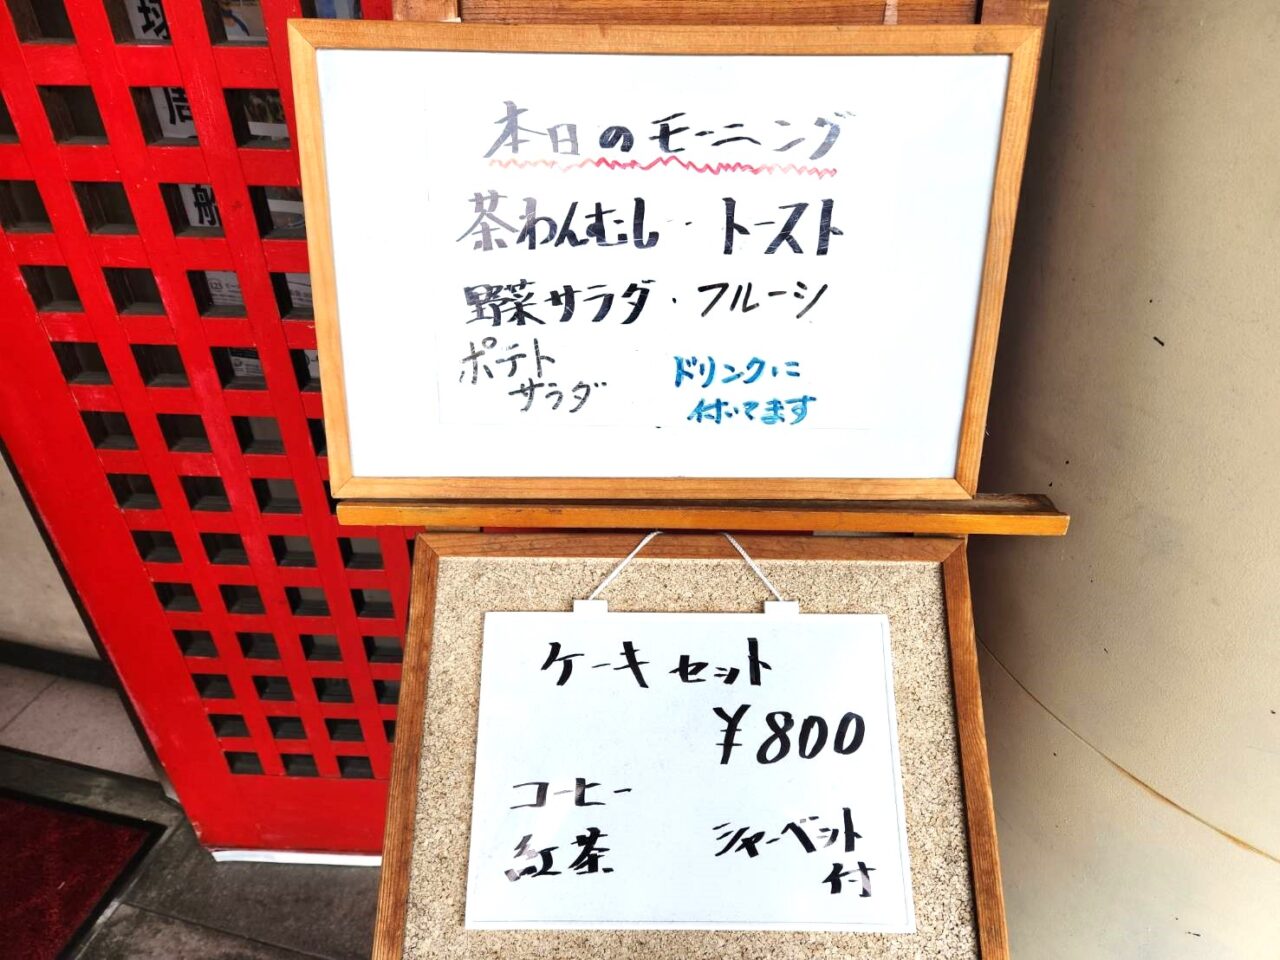 本日のモーニング
茶わんむし・トースト
野菜サラダ・フルーツ
ポテト
サラダ
ドリンクに
付いてます
ケーキセット
¥800
コーヒー
紅茶
シャーベット
付